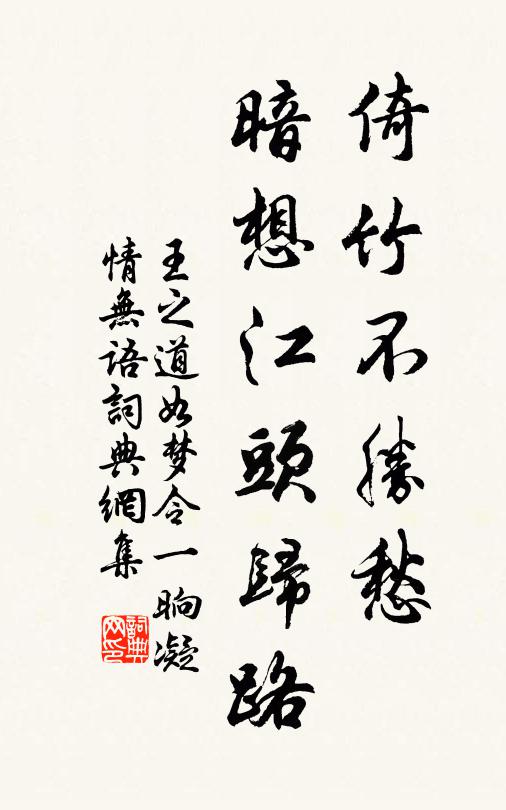 倚竹不勝愁
暗想江頭歸路
王之道如梦令一晌凝
情無語詞典網集
詞典
网印